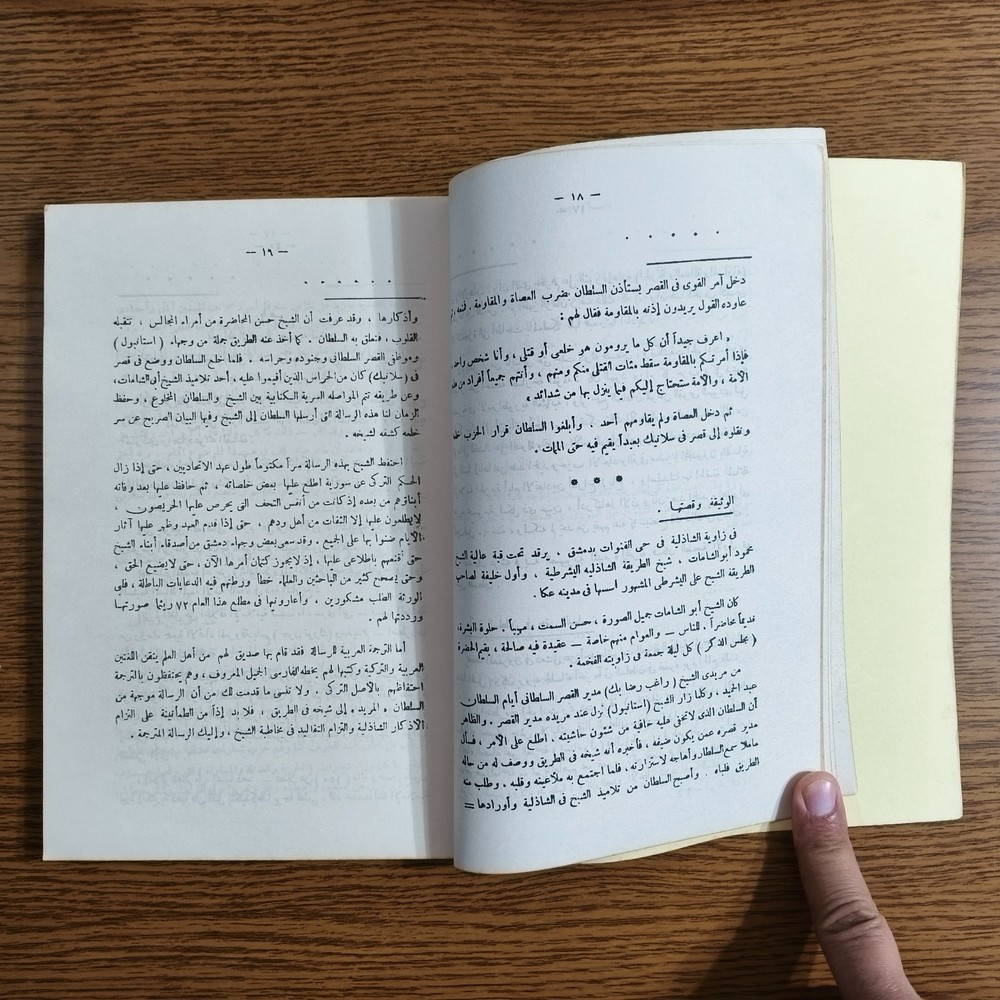 — ١٨ —
دخل آمر القوى فى القصر يستأذن السلطان بضرب العصاة والمقاومة ،
عاوده القول يريدون إذنه بالمقاومة فقال لهم :
، اعرف جيداً أن كل ما يرومون هو خلعى أو قتلى ، وأنا شخص واحد
فإذا أمرتكم بالمقاومة سقط مئات القتلى منكم ومنهم ، وأنتم جميعاً أفراد من
الأمة ، والأمة ستحتاج إليكم فيما ينزل بها من شدائد ،
ثم دخل العصاة ولم يقاومهم أحد . وأبلغوا السلطان قرار الحزب
ونقلوه إلى قصر فى سلانيك بعيداً يقيم فيه حتى الممات .
* * *
الوثيقة وقصتها .
فى زاوية الشاذلية فى حى القنوات بدمشق ، يرقد تحت قبة عالية الشيخ
محمود أبو الشامات ، شيخ الطريقة الشاذلية اليشرطية ، وأول خليفة لصاحب
الطريقة الشيخ على اليشرطى المشهور أسسها فى مدينه عكا .
كان الشيخ أبو الشامات جميل الصورة ، حسن السمت ، مهيباً . حلوة البشرة،
قديماً محاضراً . للناس — والعوام منهم خاصة — عقيدة فيه صالحة ، يقيم الحضرة
( مجلس الذكر ) كل ليلة جمعة فى زاويته الفخمة .
من مريدى الشيخ ( راغب رضا بك ) مدير القصر السلطانى أيام السلطان
عبد الحميد ، وكلما زار الشيخ (استانبول) نزل عند مريده مدير القصر . والظاهر
أن السلطان الذى لاتخفى عليه خافية من شئون حاشيته . اطلع على الأمر ، فسأل
مدير قصره عمن يكون ضيفه ، فأخبره أنه شيخه فى الطريق ووصف له من حاله
ماملأ سمع السلطان وأهاجه لاستزارته ، فلما اجتمع به ملأ عينه وقلبه . وطلب منه
الطريق فلباه . وأصبح السلطان من تلاميذ الشيخ فى الشاذلية وأورادها =
— ١٩ —
وأذكارها ، وقد عرفت أن الشيخ حسن المحاضرة من أمراء المجالس ، تتقبله
القلوب ، فتعلق به السلطان . كما أخذ عنه الطريق جملة من وجهاء ( استانبول )
وموظفى القصر السلطانى وجنوده وحراسه . فلما خلع السلطان ووضع فى قصر
فى (سلانيك) كان من الحراس الذين أقيموا عليه ، أحد تلاميذ الشيخ أبى الشامات،
وعن طريقه تتم المواصله السرية الكتابية بين الشيخ والسلطان المخلوع ، وحفظ
الزمان لنا هذه الرسالة التى أرسلها السلطان إلى الشيخ وفيها البيان الصريح عن سر
خلعه كشفه لشيخه .
احتفظ الشيخ بهذه الرسالة سراً مكتوماً طول عهد الاتحاديين ، حتى إذا زال
الحكم التركى عن سورية اطلع عليها بعض خلصائه ، ثم حافظ عليها بعد وفاته
أبناؤهم من بعده إذ كانت من أنفس التحف التى يحرص عليها الحريصون ،
لا يطلعون عليها إلا الثقات من أهل ودهم ، حتى إذا قدم العهد وظهر عليها آثار
الأيام ضنوا بها على الجميع . وقد سعى بعض وجهاء دمشق من أصدقاء أبناء الشيخ
حتى أقنعهم باطلاعى عليها ، إذ لا يجوز كتمان أمرها الآن ، حتى لايضيع الحق ،
وحتى يصحح كثير من الباحثين والعلماء خطأ ورطتهم فيه الدعايات الباطلة ، فلبى
الورثة الطلب مشكورين ، وأعارونيها فى مطلع هذا العام ٧٢ ريثما صورتها
ورددتها لهم .
أما الترجمة العربية للرسالة فقد قام بها صديق لهم من أهل العلم يتقن اللغتين
العربية والتركية وكتبها لهم بخطه الفارسى الجميل المعروف ، وهم يحتفظون بالترجمة
احتفاظهم بالأصل التركى . ولا ننسى ما قدمت لك من أن الرسالة موجهة من
السلطان « المريد » إلى شيخه فى الطريق ، فلا بد إذاً من الطمأنينة على التزام
الاذكار الشاذلية والتزام التقاليد فى مخاطبة الشيخ ، وإليك الرسالة المترجمة .